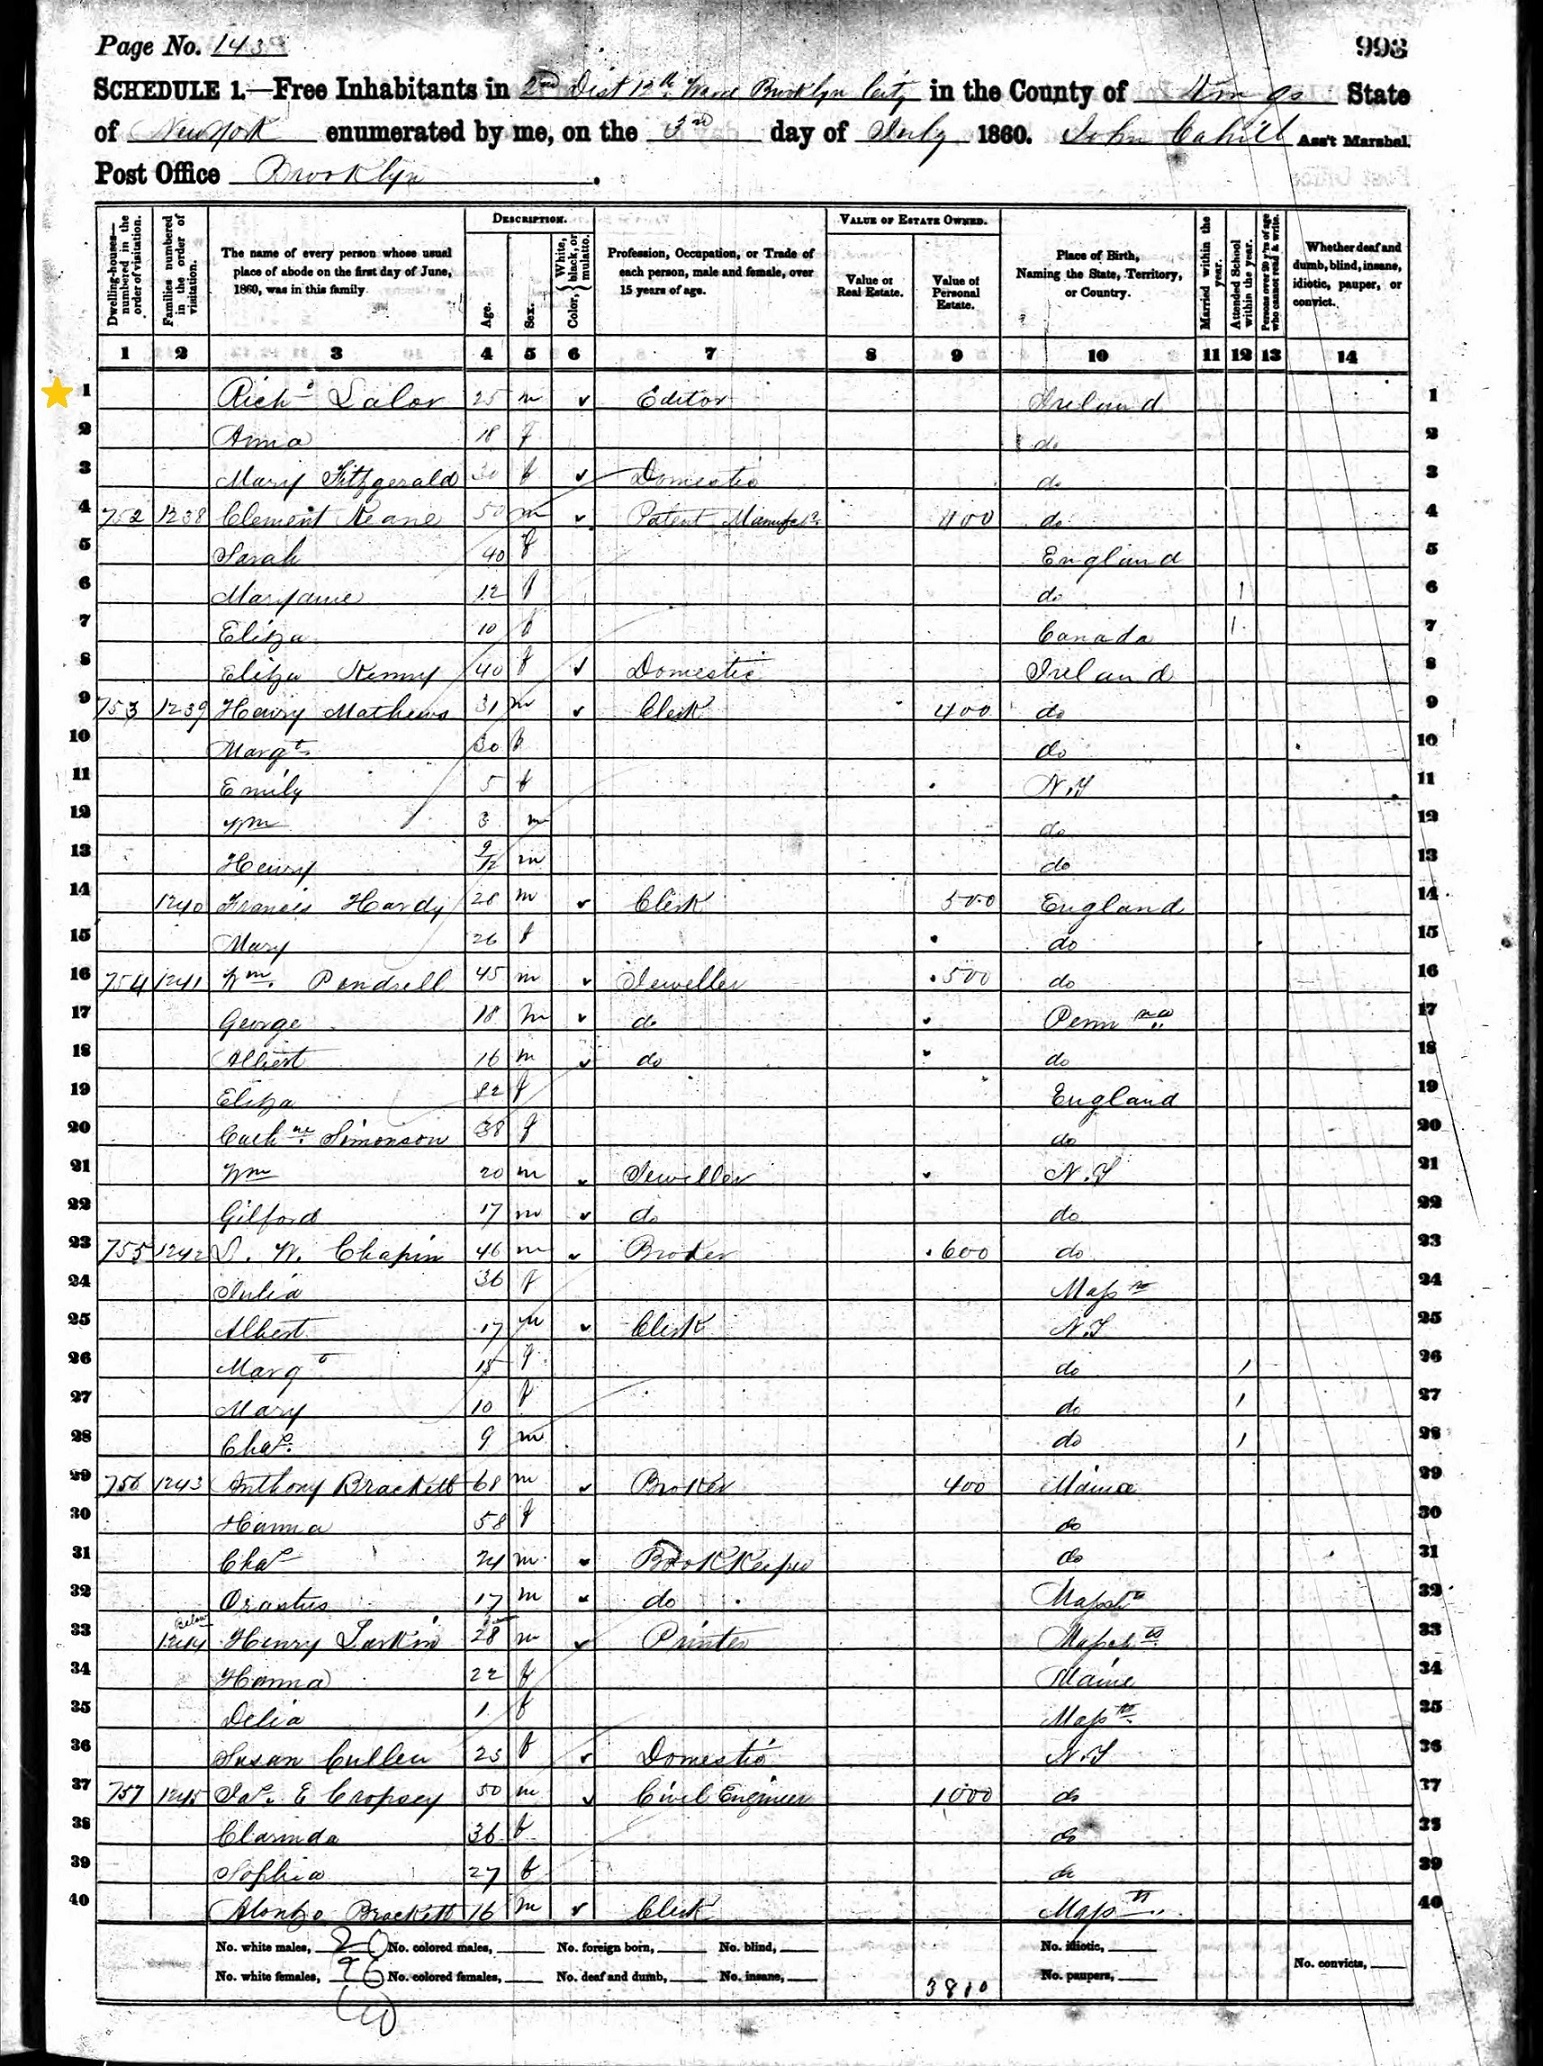 Page No. 143
993
SCHEDULE 1.—Free Inhabitants in 2nd Dist 12th Ward Brooklyn City in the County of Kings State
of New York enumerated by me, on the 3rd day of July 1860. John Cahill Ass't Marshal.
Post Office Brooklyn.
Dwelling-houses—numbered in the order of visitation.
Families numbered in the order of visitation.
The name of every person whose usual place of abode on the first day of June, 1860, was in this family.
Description.
Age.
Sex.
Color, {White, black, or mulatto.
Profession, Occupation, or Trade of each person, male and female, over 15 years of age.
Value of Estate Owned.
Value of Real Estate.
Value of Personal Estate.
Place of Birth, Naming the State, Territory, or Country.
Married within the year.
Attended School within the year.
Persons over 20 y'rs of age who cannot read & write.
Whether deaf and dumb, blind, insane, idiotic, pauper, or convict.
1 2 3 4 5 6 7 8 9 10 11 12 13 14
1 Richd Lalor 25 m Editor Ireland 1
2 Anna 18 f do 2
3 Mary Fitzgerald 30 f Domestic do 3
4 752 1238 Clement Keane 50 m Patent 400 do 4
5 Sarah 40 f England 5
6 Maryanne 12 f do 1 6
7 Eliza 10 f Canada 1 7
8 Eliza Kenny 40 f Domestic Ireland 8
9 753 1239 Henry Mathews 31 m Clerk 400 do 9
10 Margt 30 f do 10
11 Emily 5 f N.Y 11
12 Wm 3 m do 12
13 Henry 9/12 m do 13
14 1240 Francis Hardy 28 m Clerk 500 England 14
15 Mary 26 f do 15
16 754 1241 Wm. Pendrell 45 m Jeweller 500 do 16
17 George 18 m do Penn 17
18 Albert 16 m do do 18
19 Eliza f England 19
20 Cathne Simonson 38 f do 20
21 Wm 20 m Jeweller N.Y 21
22 Gilford 17 m do do 22
23 755 1242 S. W. Chapin 46 m Broker 600 do 23
24 Julia 36 f Mass 24
25 Albert 17 m Clerk N.Y 25
26 Margt 15 f do 1 26
27 Mary 10 f do 1 27
28 Chas. 9 m do 1 28
29 756 1243 Anthony Brackett 68 m Broker 400 Maine 29
30 Hanna 58 f do 30
31 Chas 24 m BookKeeper do 31
32 Orastus 17 m do 32
33 1244 Henry Larkin 28 m Printer 33
34 Hanna 22 f Maine 34
35 Delia 1 f Mass 35
36 Susan Cullen 25 f Domestic N.Y 36
37 757 1245 Jas. E Cropsey 50 m Civil Engineer 1000 do 37
38 Clarinda 36 f do 38
39 Sophia 27 f do 39
40 Alonzo Brackett 16 m Clerk Mass 40
No. white males, 20 No. colored males, No. foreign born, No. blind, No. idiotic,
No. white females, No. colored females, No. deaf and dumb, No. insane, No. paupers, No. convicts,
40